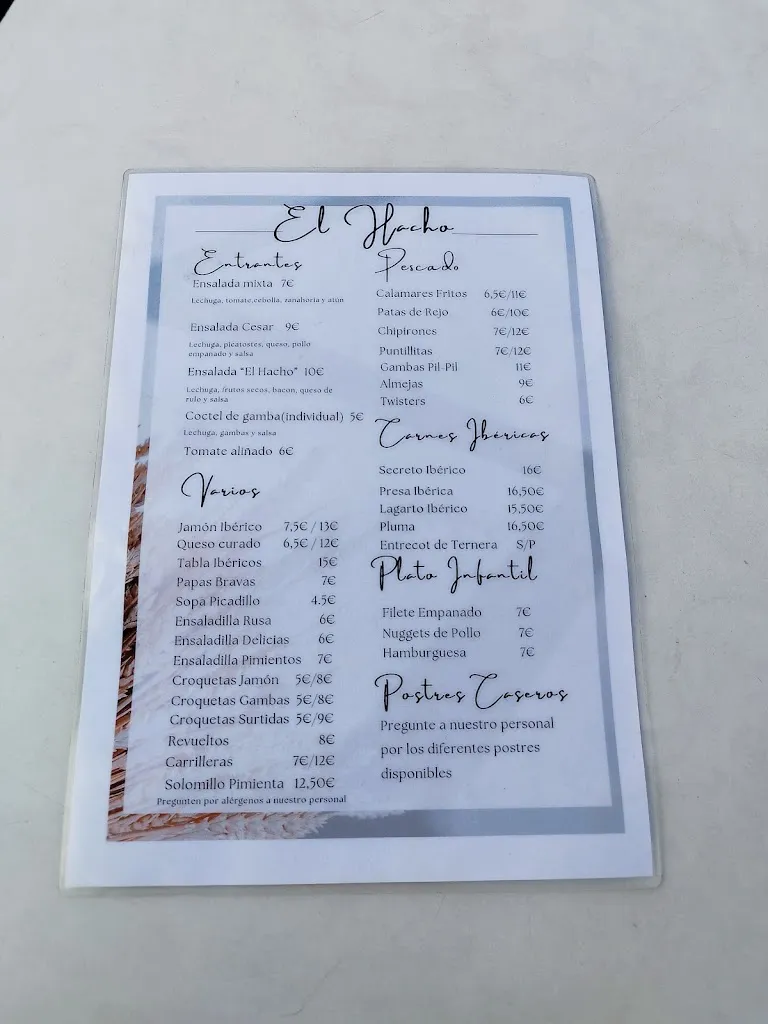 El Hacho
Entrantes
Ensalada mixta 7€
Lechuga, tomate,cebolla, zanahoria y atún
Ensalada Cesar 9€
Lechuga, picatostes, queso, pollo
empanado y salsa
Ensalada "El Hacho" 10€
Lechuga, frutos secos, bacon, queso de
rulo y salsa
Coctel de gamba(individual) 5€
Lechuga, gambas y salsa
Tomate aliñado 6€
Varios
Jamón Ibérico 7,5€ / 13€
Queso curado 6,5€ / 12€
Tabla Ibéricos 15€
Papas Bravas 7€
Sopa Picadillo 4.5€
Ensaladilla Rusa 6€
Ensaladilla Delicias 6€
Ensaladilla Pimientos 7€
Croquetas Jamón 5€/8€
Croquetas Gambas 5€/8€
Croquetas Surtidas 5€/9€
Revueltos 8€
Carrilleras 7€/12€
Solomillo Pimienta 12,50€
Pregunten por alérgenos a nuestro personal
Pescado
Calamares Fritos 6,5€/11€
Patas de Rejo 6€/10€
Chipirones 7€/12€
Puntillitas 7€/12€
Gambas Pil-Pil 11€
Almejas 9€
Twisters 6€
Carnes Ibéricas
Secreto Ibérico 16€
Presa Ibérica 16,50€
Lagarto Ibérico 15,50€
Pluma 16,50€
Entrecot de Ternera S/P
Plato Infantil
Filete Empanado 7€
Nuggets de Pollo 7€
Hamburguesa 7€
Postres Caseros
Pregunte a nuestro personal
por los diferentes postres
disponibles